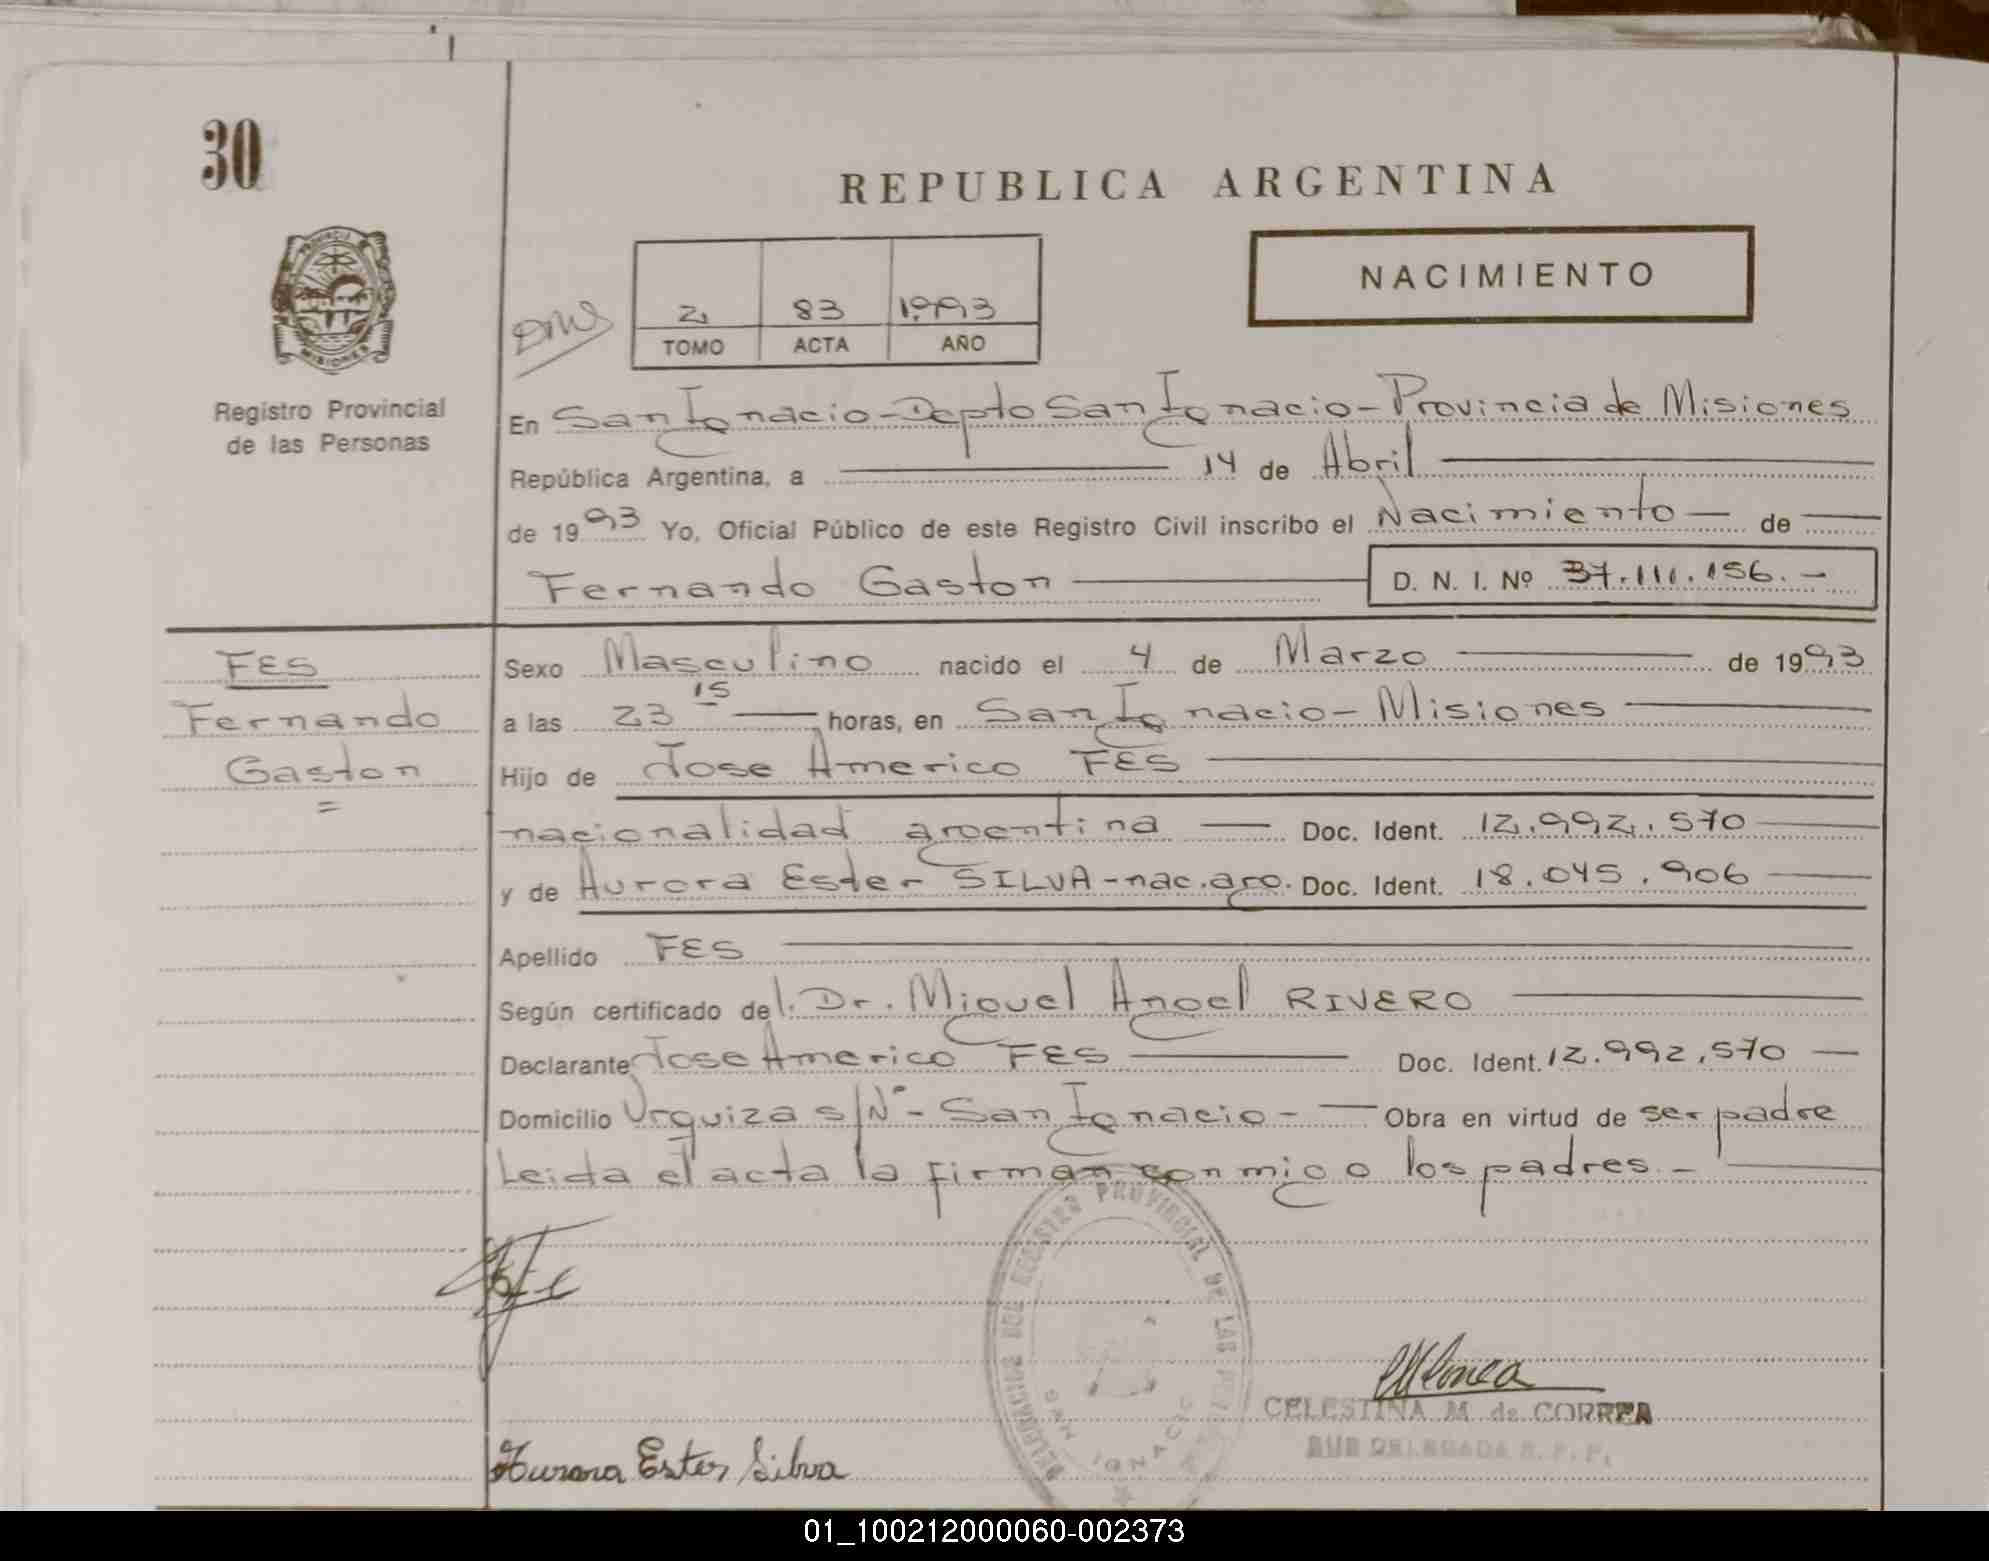 30
REPUBLICA ARGENTINA
PROVINCIA
MISIONES
NACIMIENTO
2 83 1993
TOMO ACTA AÑO
Registro Provincial
de las Personas
En San Ignacio - Depto San Ignacio - Provincia de Misiones
República Argentina, a 14 de Abril
de 1993 Yo, Oficial Público de este Registro Civil inscribo el Nacimiento - de
Fernando Gaston D. N. I. Nº 37.111.156.-
FES
Fernando
Gaston
=
Sexo Masculino nacido el 4 de Marzo de 1993
a las 23 15 horas, en San Ignacio - Misiones
Hijo de Jose Americo FES
nacionalidad argentina Doc. Ident. 12.992.570
y de Aurora Ester SILVA - nac. arg. Doc. Ident. 18.045.906
Apellido FES
Según certificado del. Dr. Miguel Angel RIVERO
Declarante Jose Americo FES Doc. Ident. 12.992.570
Domicilio Urquiza s/Nº - San Ignacio - Obra en virtud de ser padre
Leida el acta la firman conmigo los padres.-
DEL REGISTRO PROVINCIAL DE LAS
IGNACIO
CELESTINA M. de CORREA
SUB DELEGADA R. P. P.
Aurora Ester Silva
01_100212000060-002373